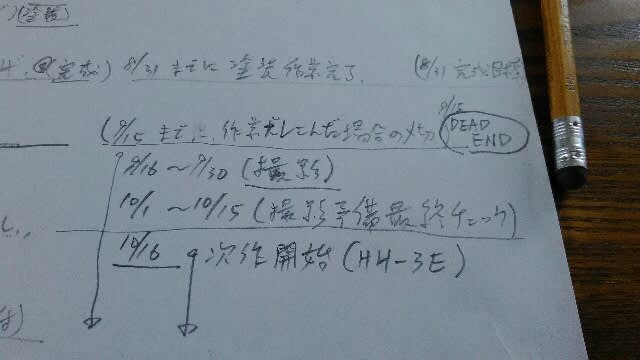 (塗装)
完成) 8/31 までに 塗装作業完了. (8/31 完成目標
(9/15 までに 作業ズレこんだ場合の〆切 9/15 DEAD END
9/16～9/30 (撮影)
10/1 ～10/15 (撮影予備最終チェック)
10/16 次作開始 (H4-3E)